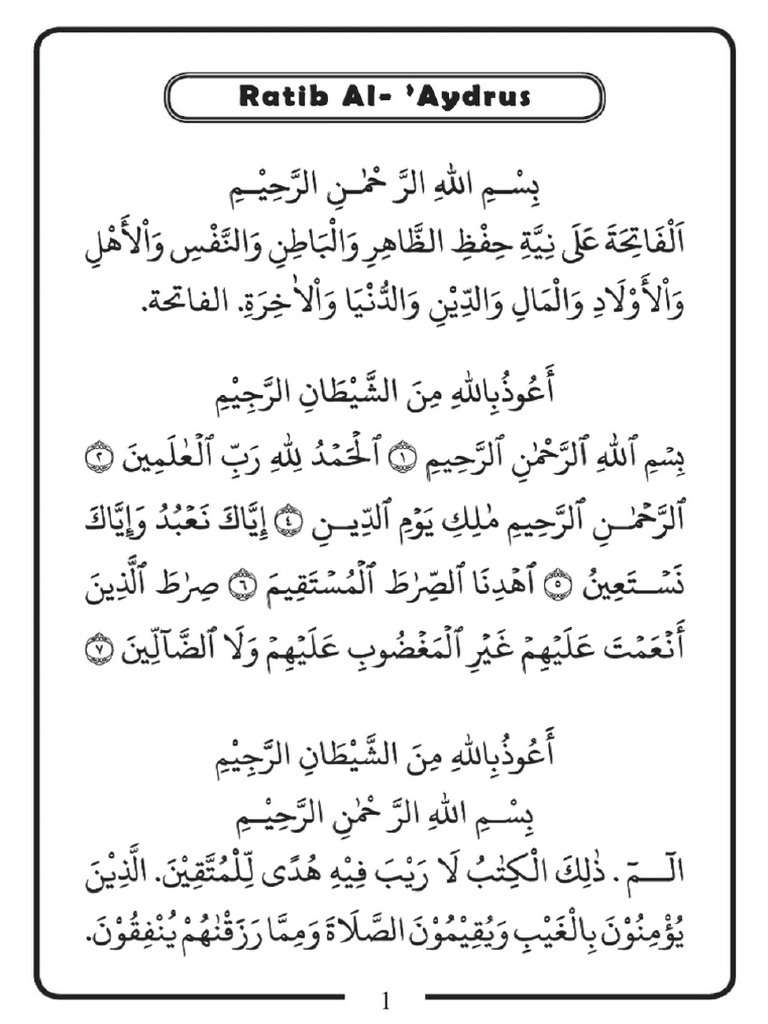 Ratib Al- 'Aydrus
بِسْــمِ اللهِ الرَّ حْمٰـنِ الرَّحِيْــمِ
اَلْفَاتِحَةَ عَلَى نِيَّةِ حِفْظِ الظَّاهِرِ وَالْبَاطِنِ وَالنَّفْسِ وَالْأَهْلِ
وَالْأَوْلَادِ وَالْمَالِ وَالدِّيْنِ وَالدُّنْيَا وَالْاٰخِرَةِ. الفاتحة.
أَعُوذُبِاللهِ مِنَ الشَّيْطَانِ الرَّجِيْمِ
بِسۡمِ ٱللهِ ٱلرَّحۡمٰنِ ٱلرَّحِيمِ ۝١ ٱلۡحَمۡدُ لِلهِ رَبِّ ٱلۡعٰلَمِينَ ۝٢
ٱلرَّحۡمٰـنِ ٱلرَّحِيمِ مٰلِكِ يَوۡمِ ٱلدِّيـنِ ۝٤ إِيَّاكَ نَعۡبُدُ وَإِيَّاكَ
نَسۡـتَعِينُ ۝٥ ٱهۡدِنَا ٱلصِّرٰطَ ٱلۡمُسۡتَقِيمَ ۝٦ صِرٰطَ ٱلَّذِينَ
أَنۡعَمۡتَ عَلَيۡهِمۡ غَيۡرِ ٱلۡمَغۡضُوبِ عَلَيۡهِمۡ وَلَا ٱلضَّآلِّينَ ۝٧
أَعُوذُبِاللهِ مِنَ الشَّيْطَانِ الرَّجِيْمِ
بِسْــمِ اللهِ الرَّ حْمٰنِ الرَّحِيْــمِ
الٓـــمٓ . ذٰلِكَ الْكِتٰبُ لَا رَيْبَ فِيْهِ هُدًى لِّلْمُتَّقِيْنَ. الَّذِيْنَ
يُؤْمِنُوْنَ بِالْغَيْبِ وَيُقِيْمُوْنَ الصَّلَاةَ وَمِمَّا رَزَقْنٰهُمْ يُنْفِقُوْنَ.
1